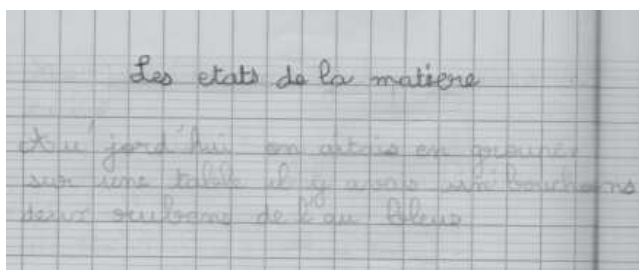 Les etats de la matière
Au' jord'hui on aitais en groupe
sur une table il y avais un bouchons
deux rubans de l'au bleue